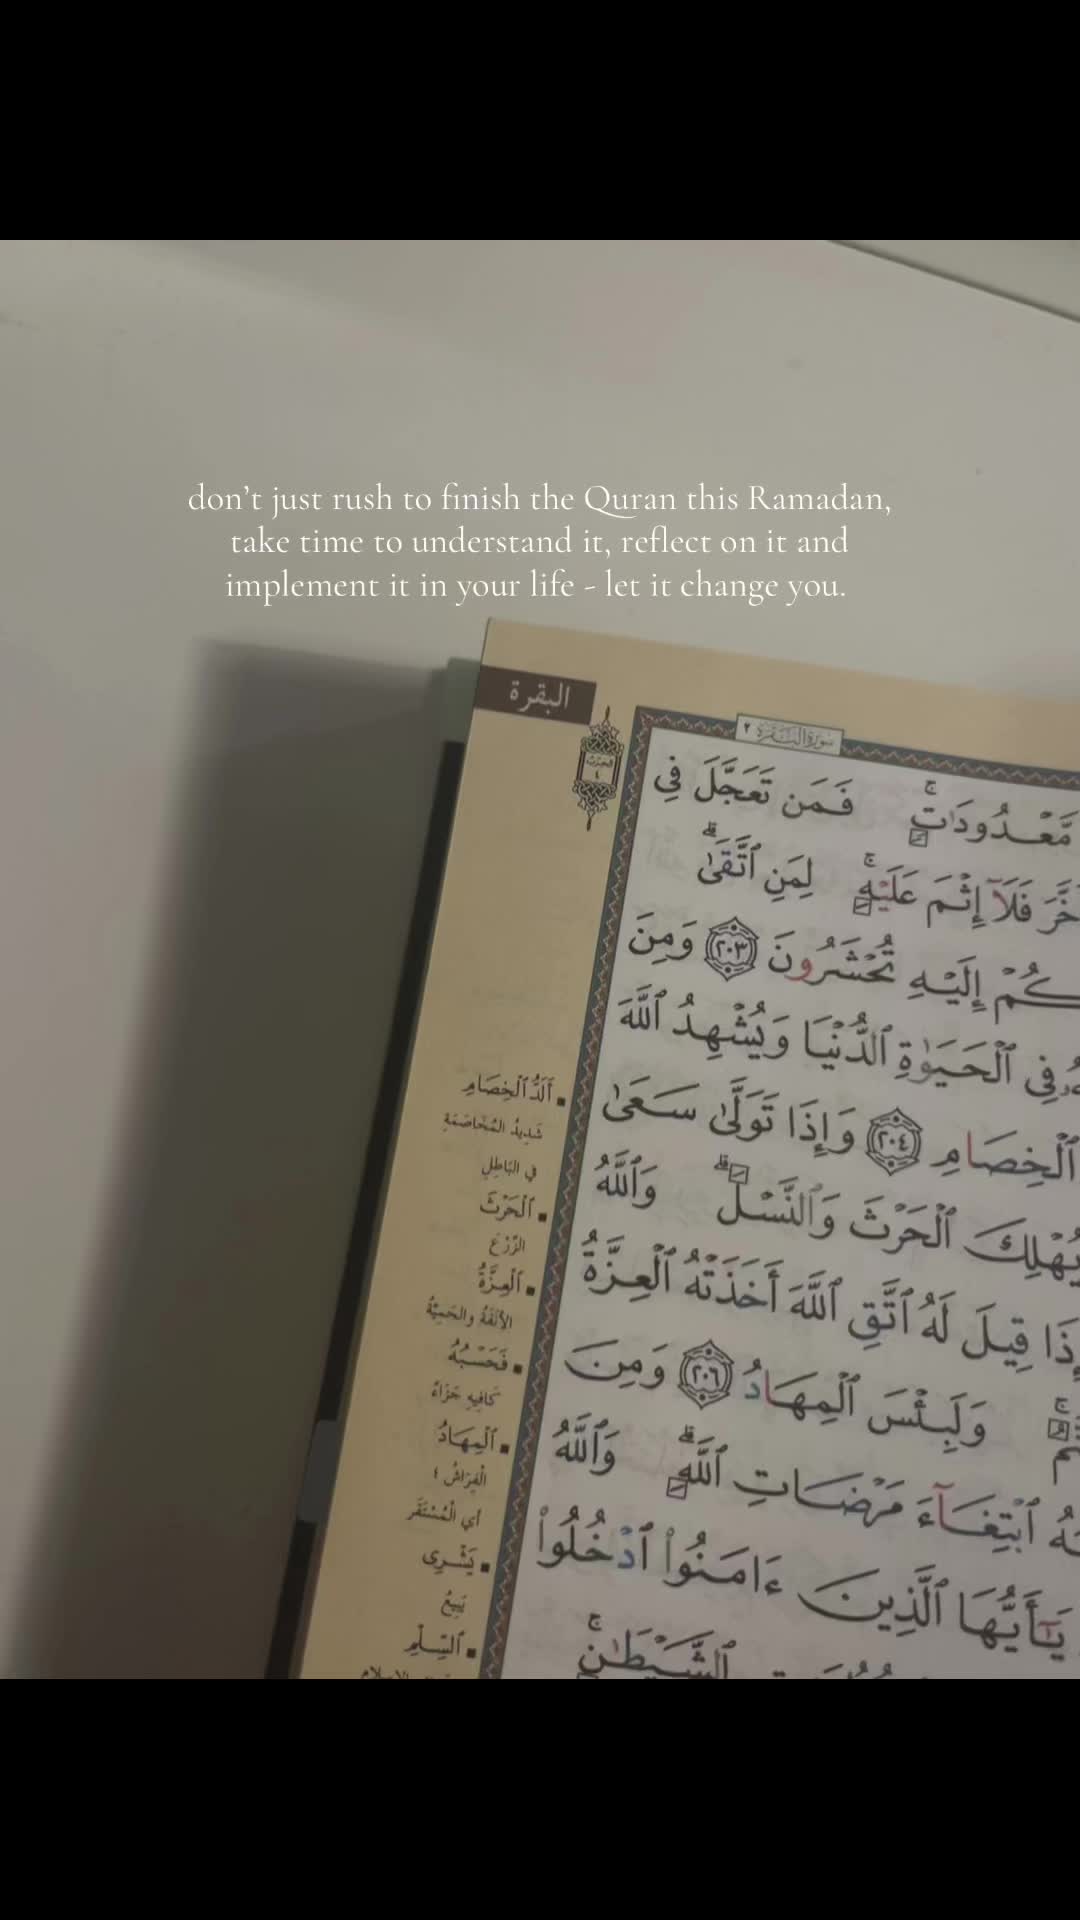 don't just rush to finish the Quran this Ramadan,
take time to understand it, reflect on it and
implement it in your life - let it change you.
البقرة
سورة البقرة ٢
الحزب
٤
مَّعْدُودَٰتٍۚ فَمَن تَعَجَّلَ فِي
فَلَآ إِثْمَ عَلَيْهِۚ لِمَنِ ٱتَّقَىٰۗ
إِلَيْهِ تُحْشَرُونَ ٢٠٣ وَمِنَ
فِي ٱلْحَيَوٰةِ ٱلدُّنْيَا وَيُشْهِدُ ٱللَّهَ
ٱلْخِصَامِ ٢٠٤ وَإِذَا تَوَلَّىٰ سَعَىٰ
يُهْلِكَ ٱلْحَرْثَ وَٱلنَّسْلَۗ وَٱللَّهُ
قِيلَ لَهُ ٱتَّقِ ٱللَّهَ أَخَذَتْهُ ٱلْعِزَّةُ
وَلَبِئْسَ ٱلْمِهَادُ ٢٠٦ وَمِنَ
ٱبْتِغَآءَ مَرْضَاتِ ٱللَّهِۗ وَٱللَّهُ
يَٰٓأَيُّهَا ٱلَّذِينَ ءَامَنُوا۟ ٱدْخُلُوا۟
ٱلشَّيْطَٰنِۚ
أَلَدُّ ٱلْخِصَامِ
شَدِيدُ المُخَاصَمَةِ
فِي البَاطِلِ
ٱلْحَرْثَ
الزَّرْعَ
ٱلْعِزَّةُ
الأَنَفَةُ والحَمِيَّةُ
فَحَسْبُهُ
كَافِيهِ جَزَاءً
ٱلْمِهَادُ
الْفِرَاشُ ؛
أي الْمُسْتَقَر
يَشْرِى
يَبِيعُ
ٱلسِّلْمِ